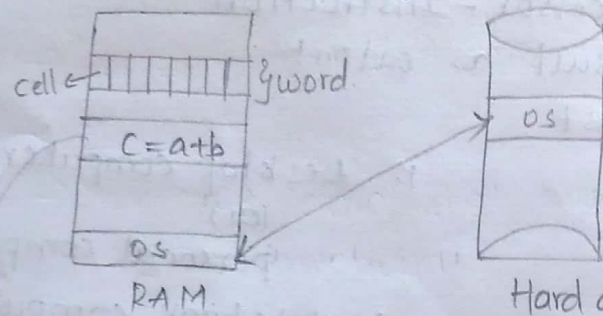 cell
word
OS
C = a+b
OS
RAM
Hard